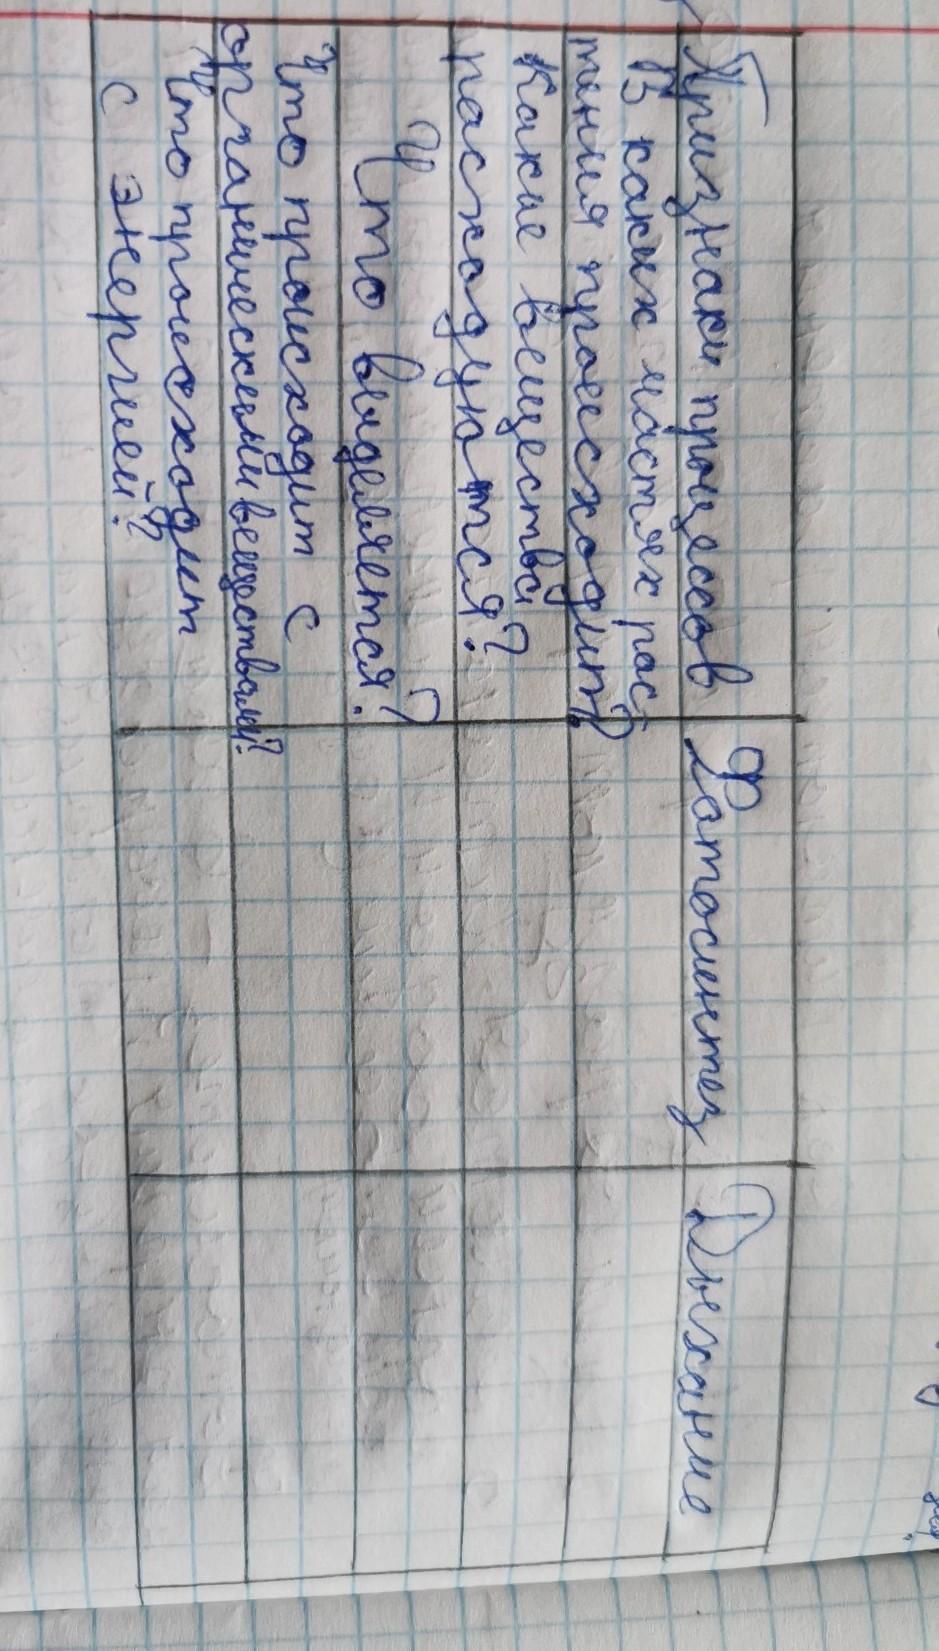 Признаки процессов
Фотосинтез
Дыхание
В каких частях рас-
тения происходит?
Какие вещества
расходуются?
Что выделяется?
Что происходит с
органическими веществами?
Что происходит
с энергией?